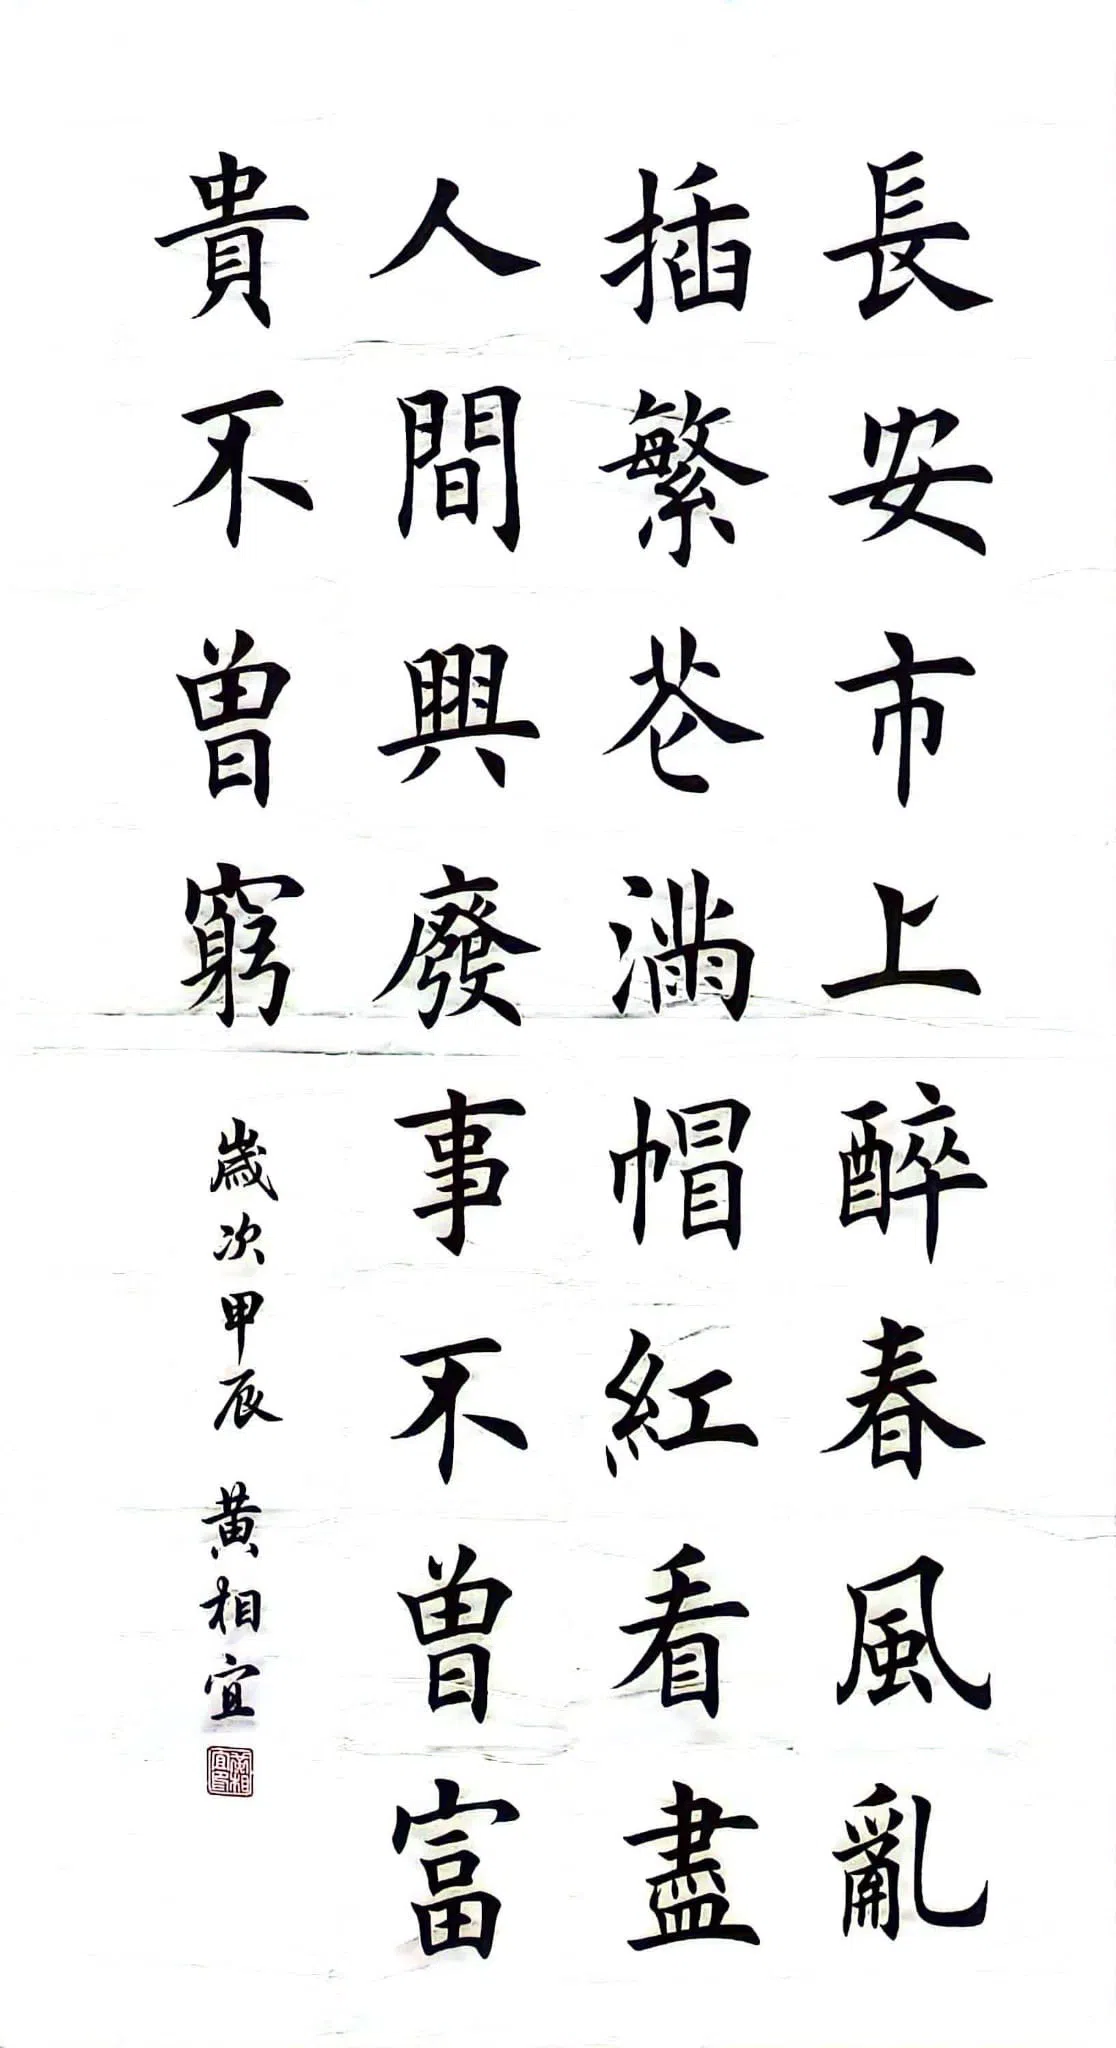 長安市上醉春風亂
插繁花滿帽紅看盡
人間興廢事不曾富
貴不曾窮
歲次甲辰 黃相宜